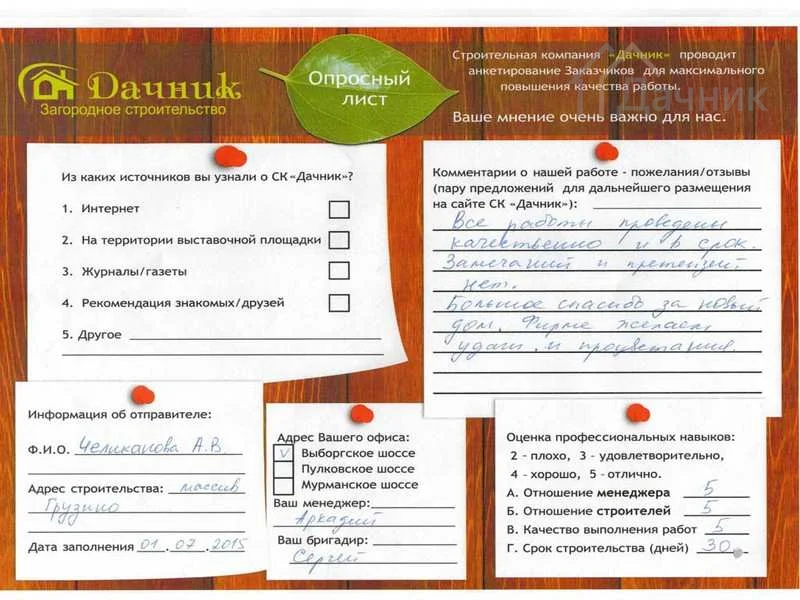 Дачник
Загородное строительство
Опросный
лист
Строительная компания «Дачник» проводит
анкетирование Заказчиков для максимального
повышения качества работы.
Ваше мнение очень важно для нас.
Дачник
Из каких источников вы узнали о СК «Дачник»?
1. Интернет
2. На территории выставочной площадки
3. Журналы/газеты
4. Рекомендация знакомых/друзей
5. Другое
Комментарии о нашей работе - пожелания/отзывы
(пару предложений для дальнейшего размещения
на сайте СК «Дачник»):
Все работы проведены
качественно и в срок.
Замечаний и претензий
нет.
Большое спасибо за новый
дом. Фирме желаем
удачи и процветания.
Информация об отправителе:
Ф.И.О. Челиканова А.В.
Адрес строительства: массив
Грузино
Дата заполнения 01.07.2015
Адрес Вашего офиса:
V Выборгское шоссе
Пулковское шоссе
Мурманское шоссе
Ваш менеджер:
Аркадий
Ваш бригадир:
Сергей
Оценка профессиональных навыков:
2 - плохо, 3 - удовлетворительно,
4 - хорошо, 5 - отлично.
А. Отношение менеджера 5
Б. Отношение строителей 5
В. Качество выполнения работ 5
Г. Срок строительства (дней) 30